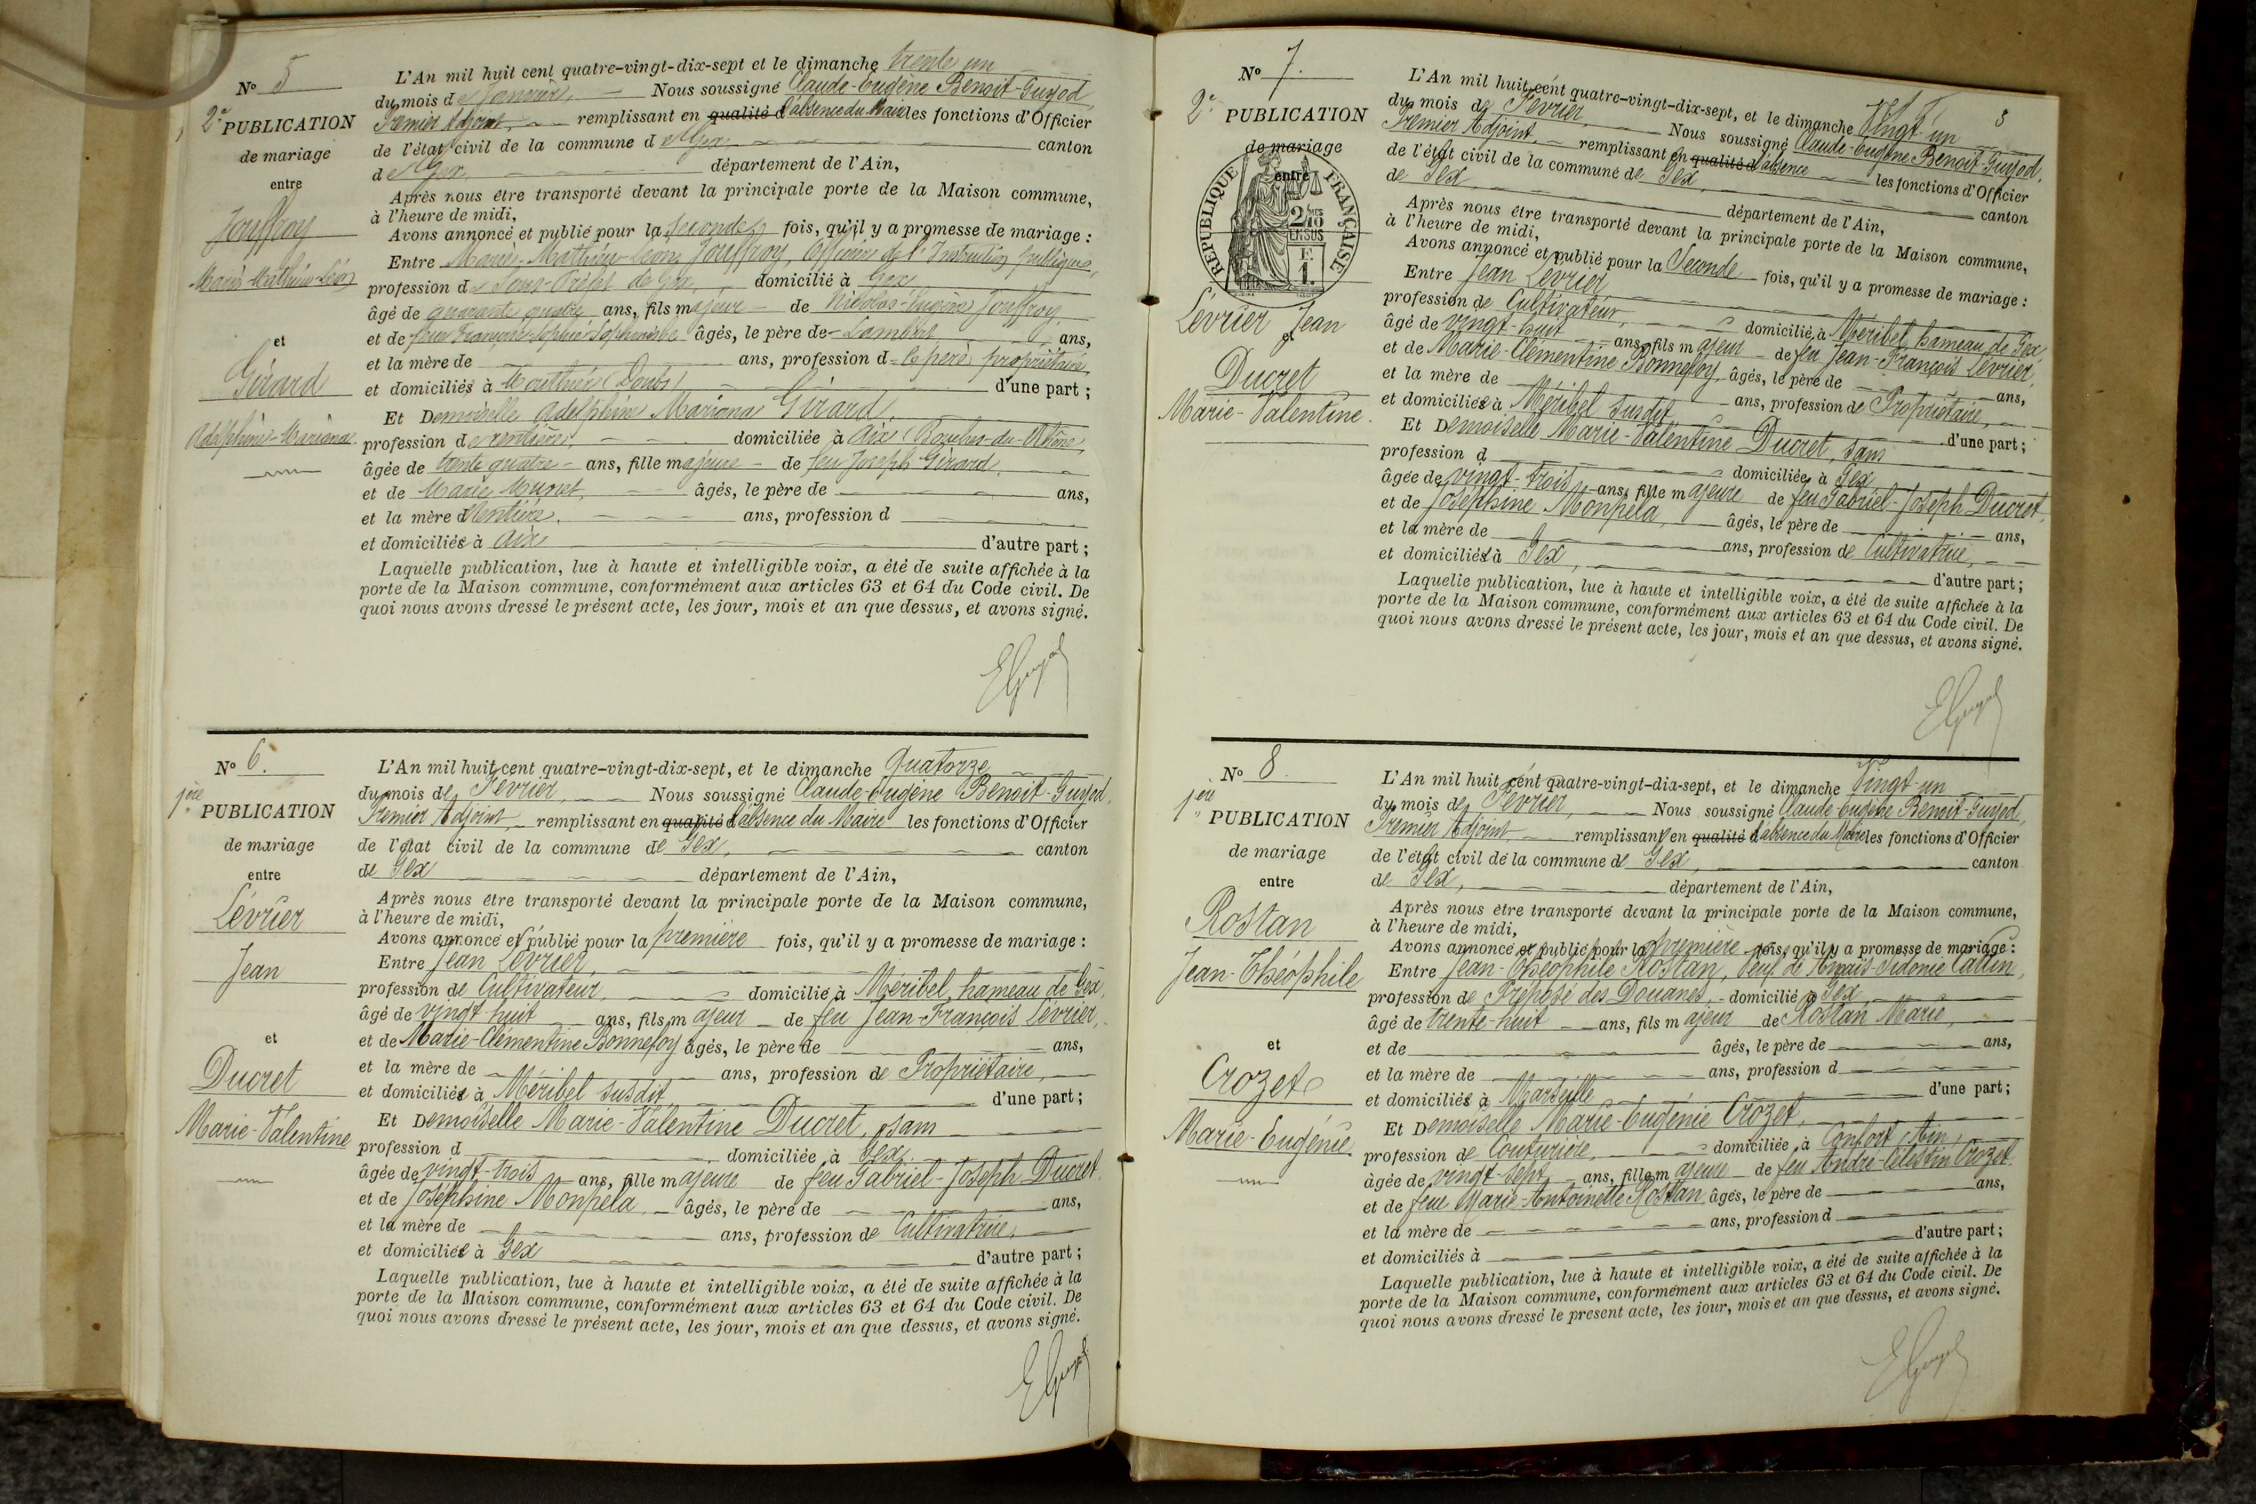 N° 5
2e PUBLICATION
de mariage
entre
Jouffroy
Marie-Mathieu-Léon
et
Girard
Adelphine-Mariana
L'An mil huit cent quatre-vingt-dix-sept et le dimanche trente un
du mois de Janvier, Nous soussigné Claude-Eugène Benoit-Guyod,
Premier Adjoint, remplissant en qualité d l'absence du Maire les fonctions d'Officier
de l'état civil de la commune de Gex canton
de Gex département de l'Ain,
Après nous être transporté devant la principale porte de la Maison commune,
à l'heure de midi,
Avons annoncé et publié pour la seconde fois, qu'il y a promesse de mariage :
Entre Marie-Mathieu-Léon Jouffroy, Officier de l'Instruction publique,
profession de Sous-Préfet de Gex, domicilié à Gex
âgé de quarante quatre ans, fils majeur de Nicolas-Eugène Jouffroy
et de feue Françoise-Sophie-Sophronisbe Lambert âgés, le père de ans,
et la mère de ans, profession d le père propriétaire,
et domiciliés à (Doubs) d'une part ;
Et Demoiselle Adelphine Mariana Girard,
profession de rentière, domiciliée à Aix (Bouches-du-Rhône)
âgée de trente quatre ans, fille majeure de feu Joseph Girard,
et de Marie Muret, âgés, le père de ans,
et la mère d Rentière, ans, profession d
et domiciliés à Aix d'autre part ;
Laquelle publication, lue à haute et intelligible voix, a été de suite affichée à la
porte de la Maison commune, conformément aux articles 63 et 64 du Code civil. De
quoi nous avons dressé le présent acte, les jour, mois et an que dessus, et avons signé.
EGuyod
N° 6.
1ère PUBLICATION
de mariage
entre
Lévrier
Jean
et
Ducret
Marie-Valentine
L'An mil huit cent quatre-vingt-dix-sept, et le dimanche Quatorze
du mois de Février, Nous soussigné Claude-Eugène Benoit-Guyod,
Premier Adjoint, remplissant en qualité d l'absence du Maire les fonctions d'Officier
de l'état civil de la commune de Gex, canton
de Gex département de l'Ain,
Après nous être transporté devant la principale porte de la Maison commune,
à l'heure de midi,
Avons annoncé et publié pour la première fois, qu'il y a promesse de mariage :
Entre Jean Lévrier,
profession de Cultivateur, domicilié à Méribel, hameau de Gex,
âgé de vingt-huit ans, fils majeur de feu Jean-François Lévrier,
et de Marie-Clémentine Bonnefoy âgés, le père de ans,
et la mère de ans, profession de Propriétaire,
et domiciliés à Méribel susdit d'une part ;
Et Demoiselle Marie-Valentine Ducret, sans
profession d domiciliée à Gex,
âgée de vingt-trois ans, fille majeure de feu Gabriel-Joseph Ducret
et de Joséphine Monpela âgés, le père de ans,
et la mère de ans, profession de Cultivatrice,
et domiciliés à Gex d'autre part ;
Laquelle publication, lue à haute et intelligible voix, a été de suite affichée à la
porte de la Maison commune, conformément aux articles 63 et 64 du Code civil. De
quoi nous avons dressé le présent acte, les jour, mois et an que dessus, et avons signé.
EGuyod
5
N° 7.
2e PUBLICATION
de mariage
entre
RÉPUBLIQUE FRANÇAISE
2/10 EN SUS
E. 1.
Lévrier Jean
et
Ducret
Marie-Valentine.
L'An mil huit cent quatre-vingt-dix-sept, et le dimanche Vingt-un
du mois de Février, Nous soussigné Claude-Eugène Benoit-Guyod,
Premier Adjoint, remplissant en qualité d l'absence les fonctions d'Officier
de l'état civil de la commune de Gex, canton
de Gex département de l'Ain,
Après nous être transporté devant la principale porte de la Maison commune,
à l'heure de midi,
Avons annoncé et publié pour la Seconde fois, qu'il y a promesse de mariage :
Entre Jean Lévrier
profession de Cultivateur, domicilié à Méribel, hameau de Gex
âgé de vingt-huit ans, fils majeur de feu Jean-François Lévrier,
et de Marie-Clémentine Bonnefoy, âgés, le père de ans,
et la mère de ans, profession de Propriétaire,
et domiciliés à Méribel susdit d'une part ;
Et Demoiselle Marie-Valentine Ducret, sans
profession d domiciliée à Gex
âgée de vingt-trois ans, fille majeure de feu Gabriel-Joseph Ducret,
et de Joséphine Monpela, âgés, le père de ans,
et la mère de ans, profession de Cultivatrice,
et domiciliés à Gex, d'autre part ;
Laquelle publication, lue à haute et intelligible voix, a été de suite affichée à la
porte de la Maison commune, conformément aux articles 63 et 64 du Code civil. De
quoi nous avons dressé le présent acte, les jour, mois et an que dessus, et avons signé.
EGuyod
N° 8.
1ère PUBLICATION
de mariage
entre
Rostan
Jean-Théophile
et
Crozet
Marie-Eugénie
L'An mil huit cent quatre-vingt-dix-sept, et le dimanche Vingt-un
du mois de Février, Nous soussigné Claude-Eugène Benoit-Guyod,
Premier Adjoint, remplissant en qualité d l'absence du Maire les fonctions d'Officier
de l'état civil de la commune de Gex, canton
de Gex, département de l'Ain,
Après nous être transporté devant la principale porte de la Maison commune,
à l'heure de midi,
Avons annoncé et publié pour la première fois, qu'il y a promesse de mariage :
Entre Jean-Théophile Rostan, Veuf de Anaïs-Sidonie Catlin,
profession de Préposé des Douanes, domicilié à Gex,
âgé de trente-huit ans, fils majeur de Rostan Marie,
et de âgés, le père de ans,
et la mère de ans, profession d
et domiciliés à Marseille d'une part ;
Et Demoiselle Marie-Eugénie Crozet,
profession de Couturière, domiciliée à Confort, Ain,
âgée de vingt-sept ans, fille majeure de feu André-Célestin Crozet
et de feue Marie-Antoinette Rostan âgés, le père de ans,
et la mère de ans, profession d
et domiciliés à d'autre part ;
Laquelle publication, lue à haute et intelligible voix, a été de suite affichée à la
porte de la Maison commune, conformément aux articles 63 et 64 du Code civil. De
quoi nous avons dressé le présent acte, les jour, mois et an que dessus, et avons signé.
EGuyod